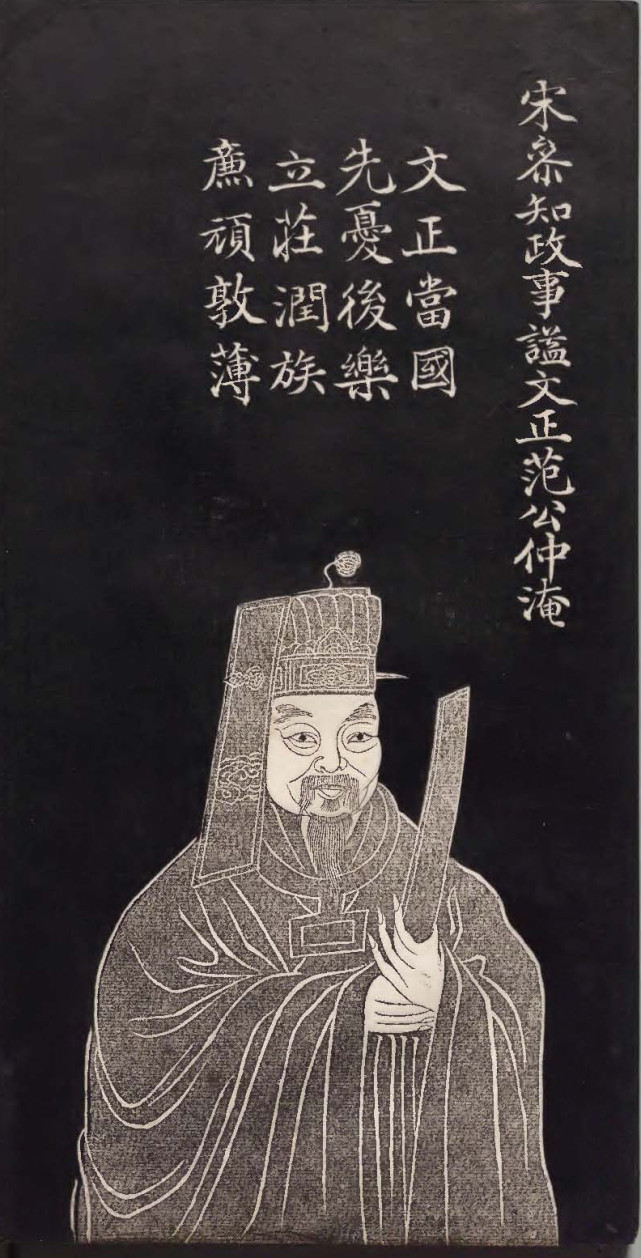 宋叅知政事諡文正范公仲淹
文正當國
先憂後樂
立莊潤族
廉頑敦薄